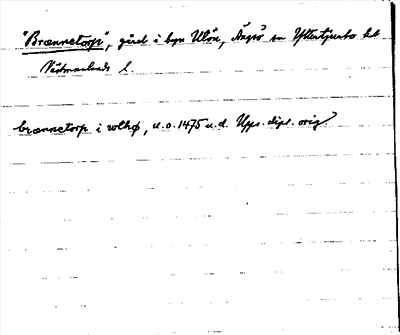 "Brænnetorp", gård i byn Utön, Ängsö sn Yttertjurbo hd
Västmanlands l.
brænnetorp i wthø, u.o. 1475 u.d. Upps. dipl. orig